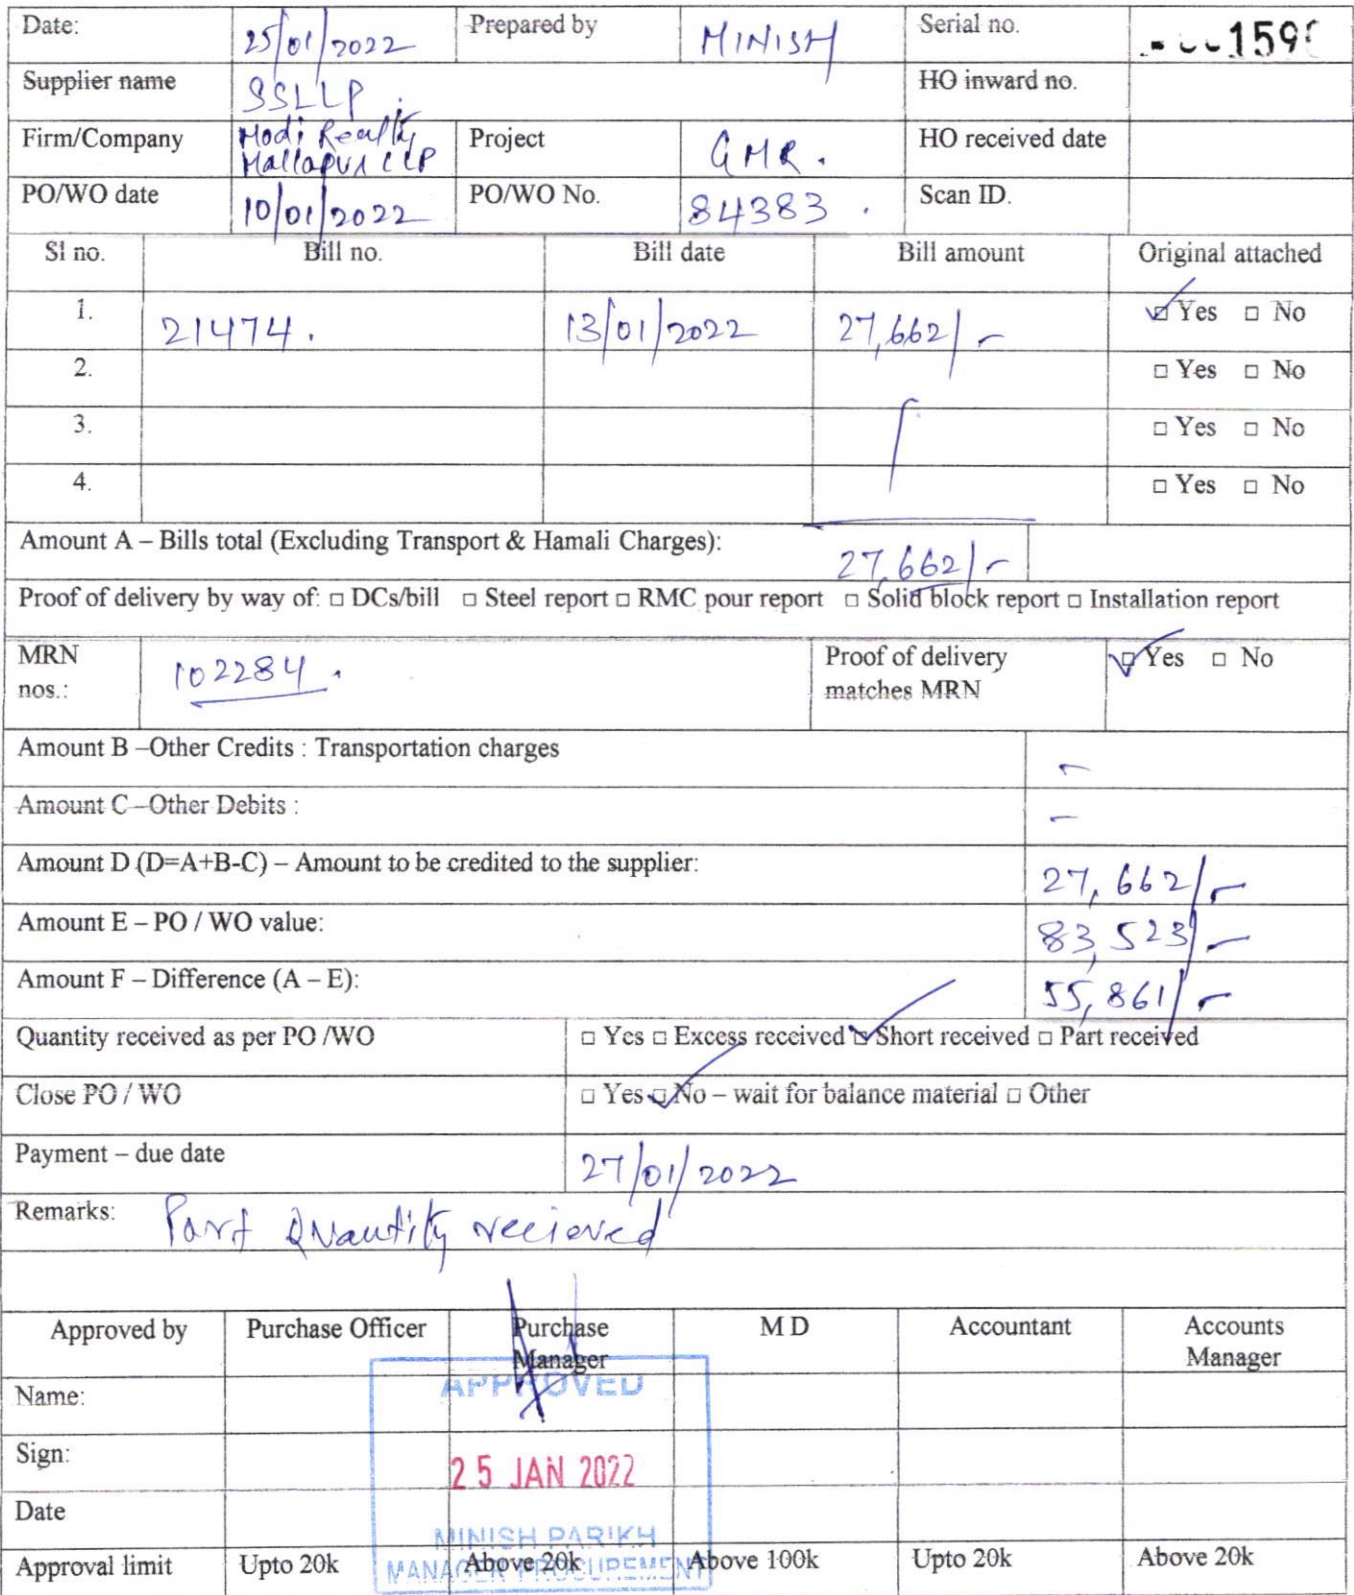 Date: 25/01/2022 Prepared by MINISH Serial no. 159
Supplier name SSLLP. HO inward no.
Firm/Company Modi Realty Mallapur LLP Project GMR. HO received date
PO/WO date 10/01/2022 PO/WO No. 84383. Scan ID.
Sl no. Bill no. Bill date Bill amount Original attached
1. 21474. 13/01/2022 27,662/- ☑ Yes □ No
2. □ Yes □ No
3. □ Yes □ No
4. □ Yes □ No
Amount A – Bills total (Excluding Transport & Hamali Charges): 27,662/-
Proof of delivery by way of: □ DCs/bill □ Steel report □ RMC pour report □ Solid block report □ Installation report
MRN nos.: 102284. Proof of delivery matches MRN ☑ Yes □ No
Amount B –Other Credits : Transportation charges -
Amount C –Other Debits : -
Amount D (D=A+B-C) – Amount to be credited to the supplier: 27,662/-
Amount E – PO / WO value: 83,523/-
Amount F – Difference (A – E): 55,861/-
Quantity received as per PO /WO □ Yes □ Excess received ☑ Short received □ Part received
Close PO / WO □ Yes ☑ No – wait for balance material □ Other
Payment – due date 27/01/2022
Remarks: Part Quantity recieved
Approved by Purchase Officer Purchase Manager M D Accountant Accounts Manager
APPROVED
Name:
Sign:
25 JAN 2022
Date
MINISH PARIKH
MANAGER PROCUREMENT
Approval limit Upto 20k Above 20k Above 100k Upto 20k Above 20k